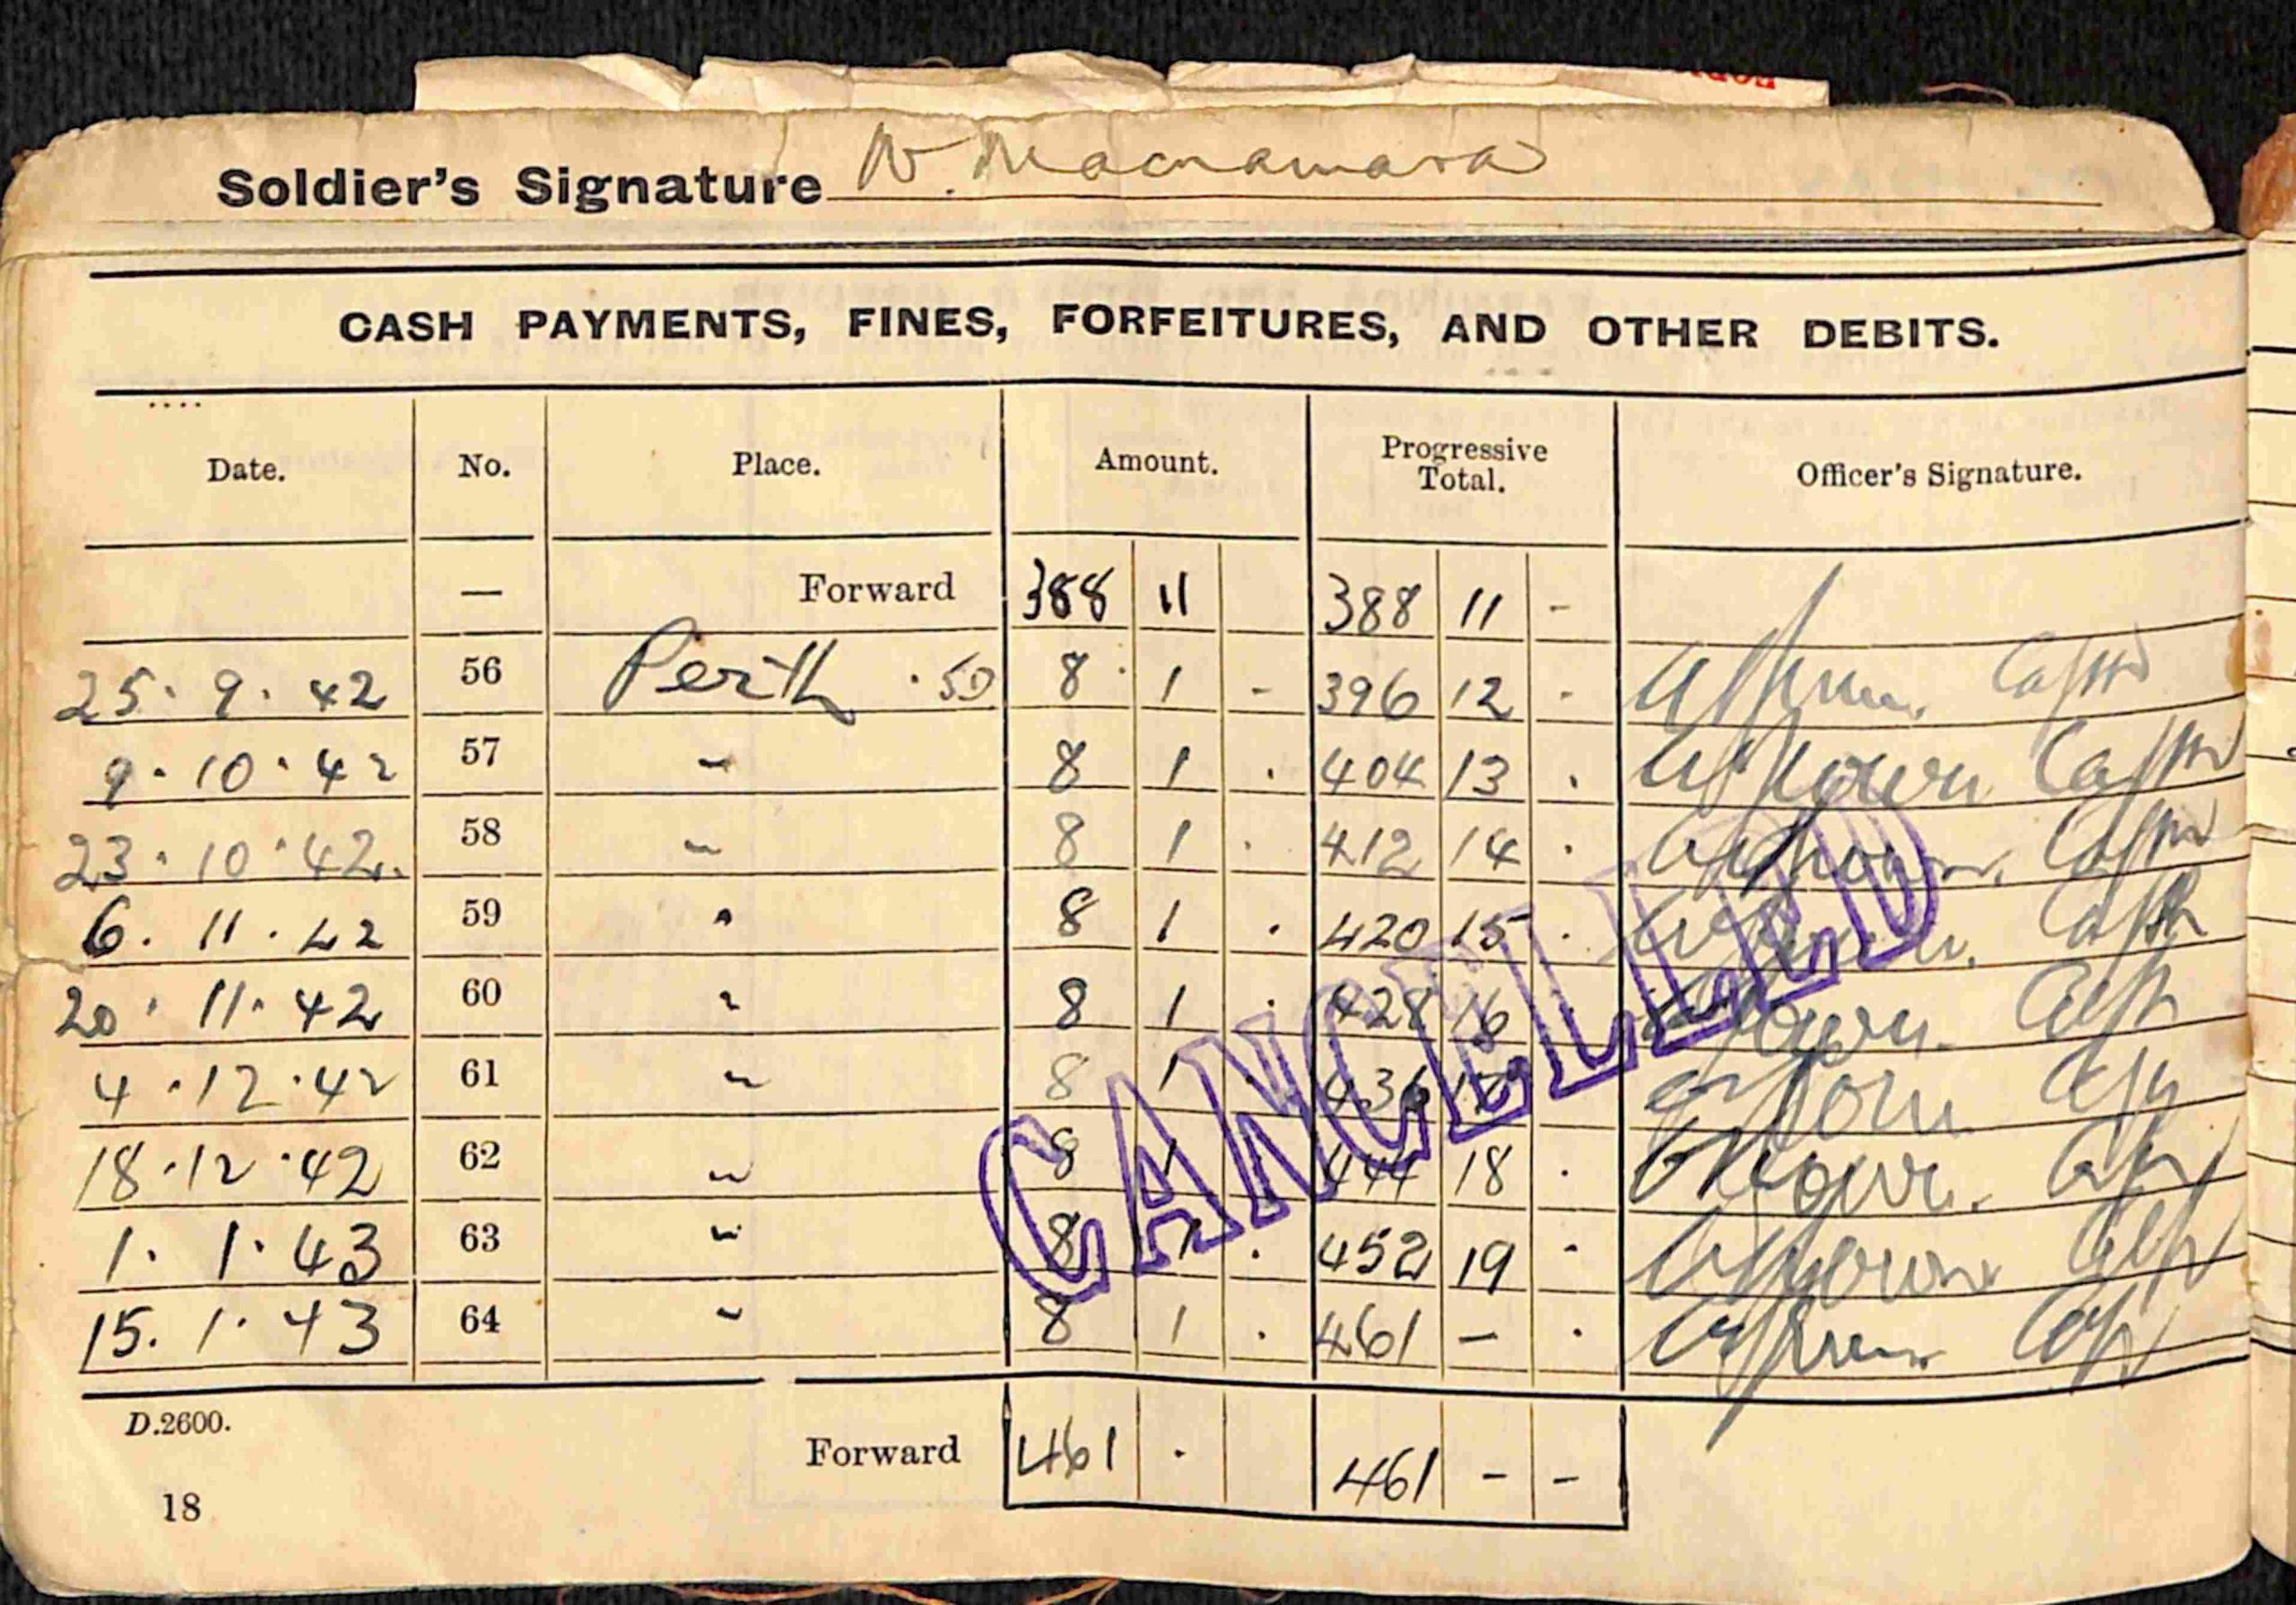 Soldier's Signature W. Macnamara
CASH PAYMENTS, FINES, FORFEITURES, AND OTHER DEBITS.
Date. No. Place. Amount. Progressive Total. Officer's Signature.
— Forward 388 11 388 11 -
25. 9. 42 56 Perth . 50 8 1 - 396 12 - Capt
9. 10. 42 57 " 8 1 . 404 13 . Capt
23. 10. 42. 58 " 8 1 . 412 14 . Capt
6. 11. 42 59 " 8 1 . 420 15 . Capt
20. 11. 42 60 " 8 1 . 428 16 Capt
4. 12. 42 61 " 8 1 . 436 17 Capt
18. 12. 42 62 " 8 1 444 18 . Capt
1. 1. 43 63 " 8 1 . 452 19 - Capt
15. 1. 43 64 " 8 1 . 461 — . Capt
CANCELLED
D.2600.
Forward 461 . 461 - -
18